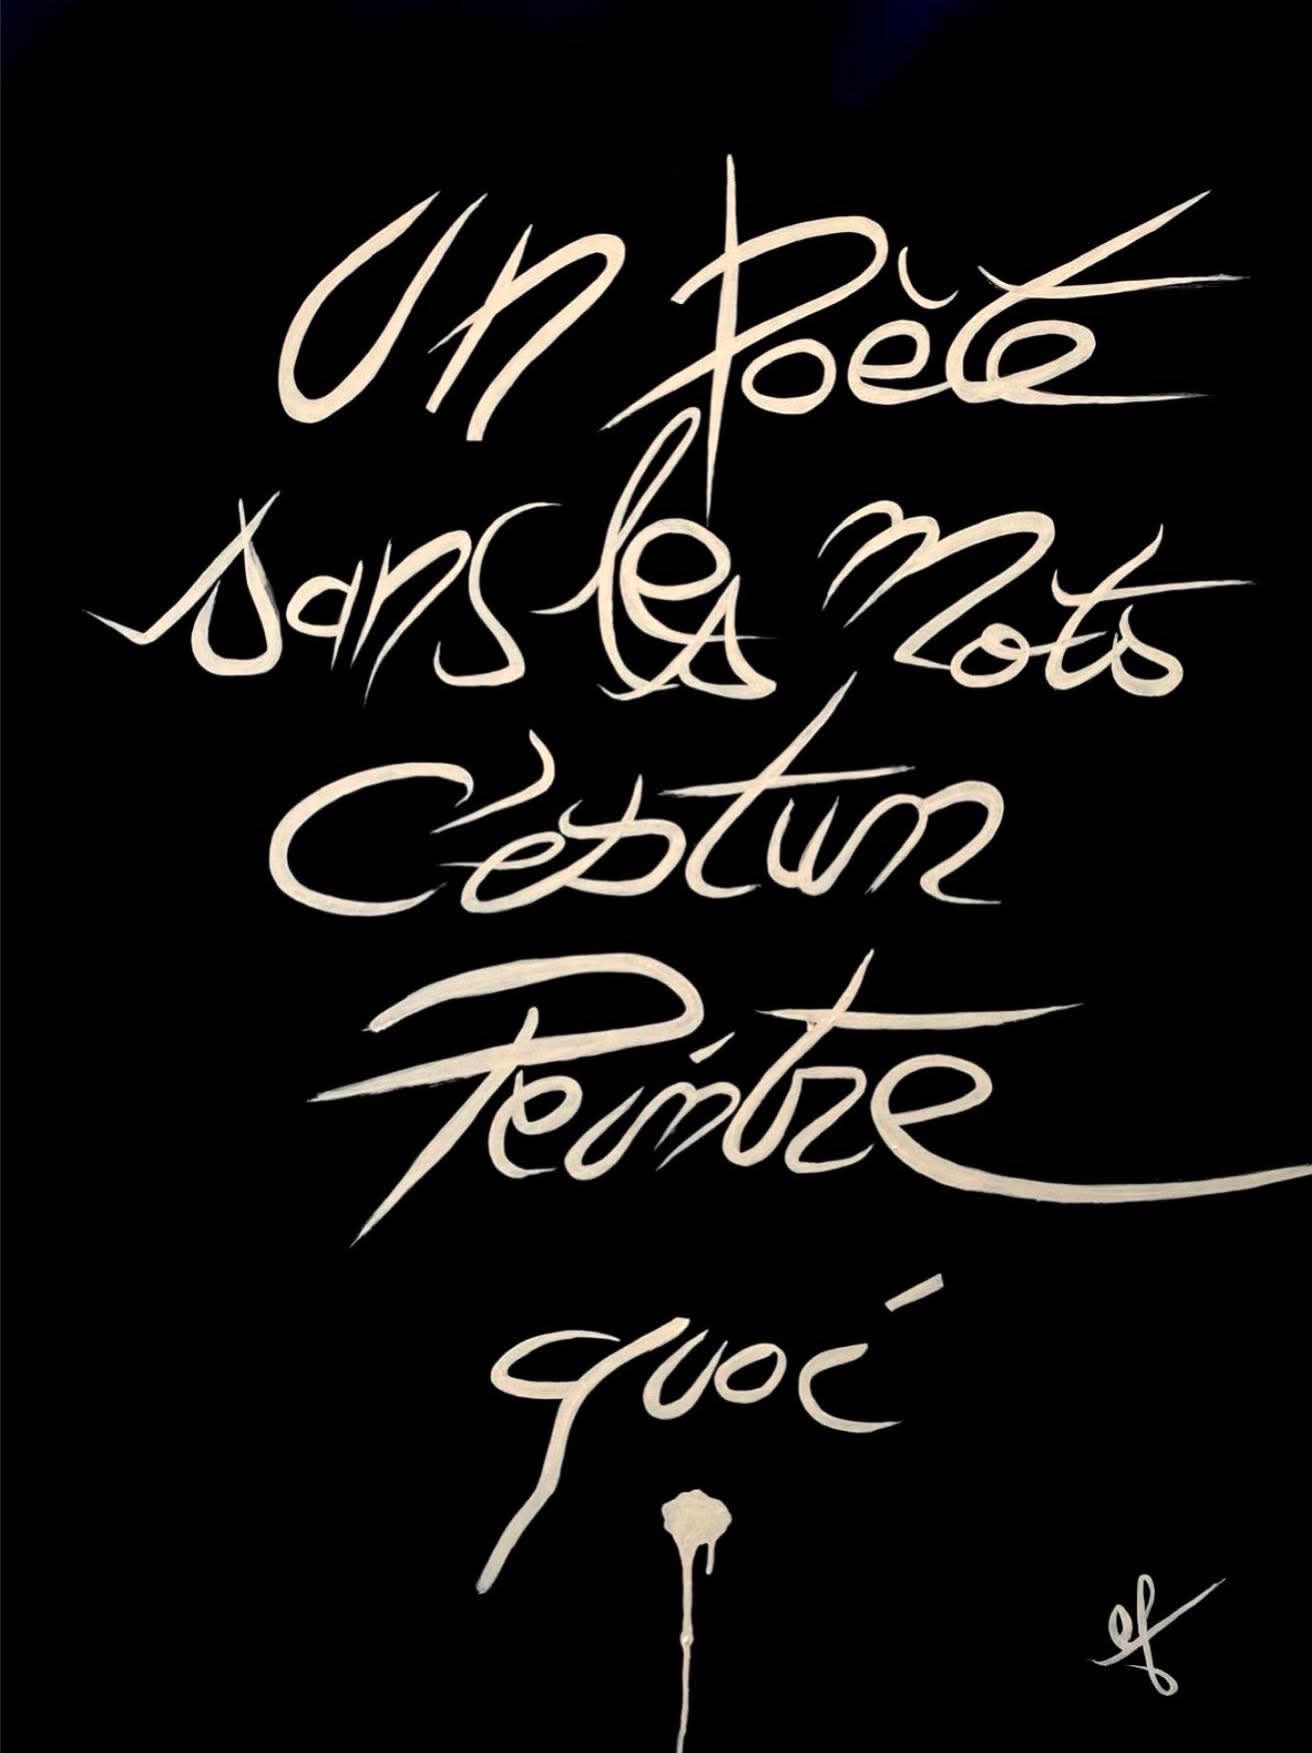 Un Poète
sans les mots
C'est un
Peintre
quoi
ef